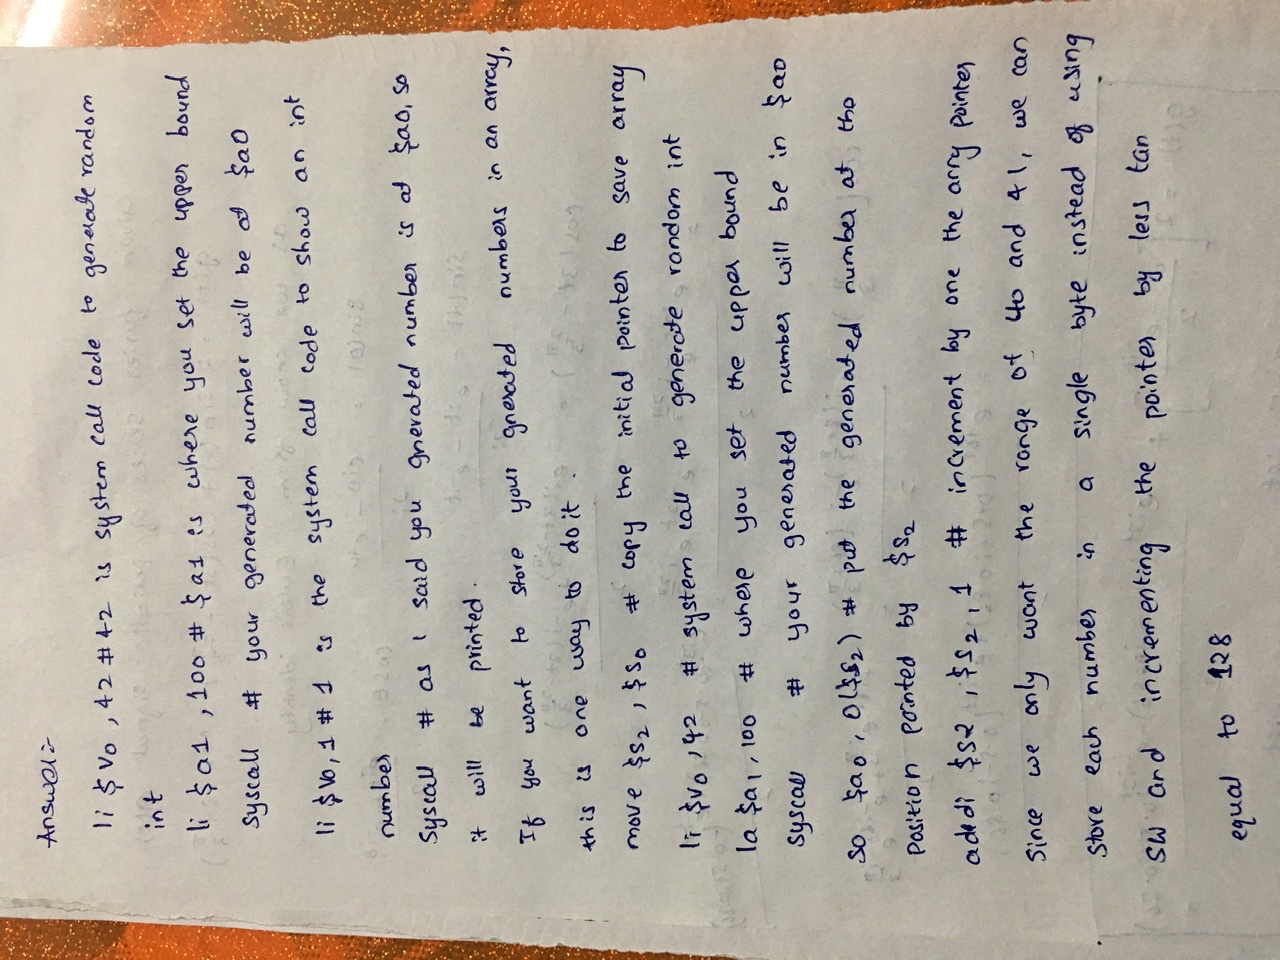 Answer:-
li $v0, 42 # 42 is system call code to generate random
int
li $a1, 100 # $a1 is where you set the upper bound
Syscall # your generated number will be at $a0
li $v0, 1 # 1 is the system call code to show an int
number
Syscall # as I said you gnerated number is at $a0, so
it will be printed.
If you want to store your gnerated numbers in an array,
this is one way to do it.
move $s2, $s0 # copy the initial pointer to save array
li $v0, 42 # system call to generate random int
la $a1, 100 # where you set the upper bound
Syscall # your generated number will be in $a0
so $a0, 0($s2) # put the generated number at the
Position pointed by $s2
addi $s2, $s2, 1 # increment by one the arry pointer
Since we only want the range of 40 and 41, we can
store each number in a single byte instead of using
SW and incrementing the pointer by less tan
equal to 128